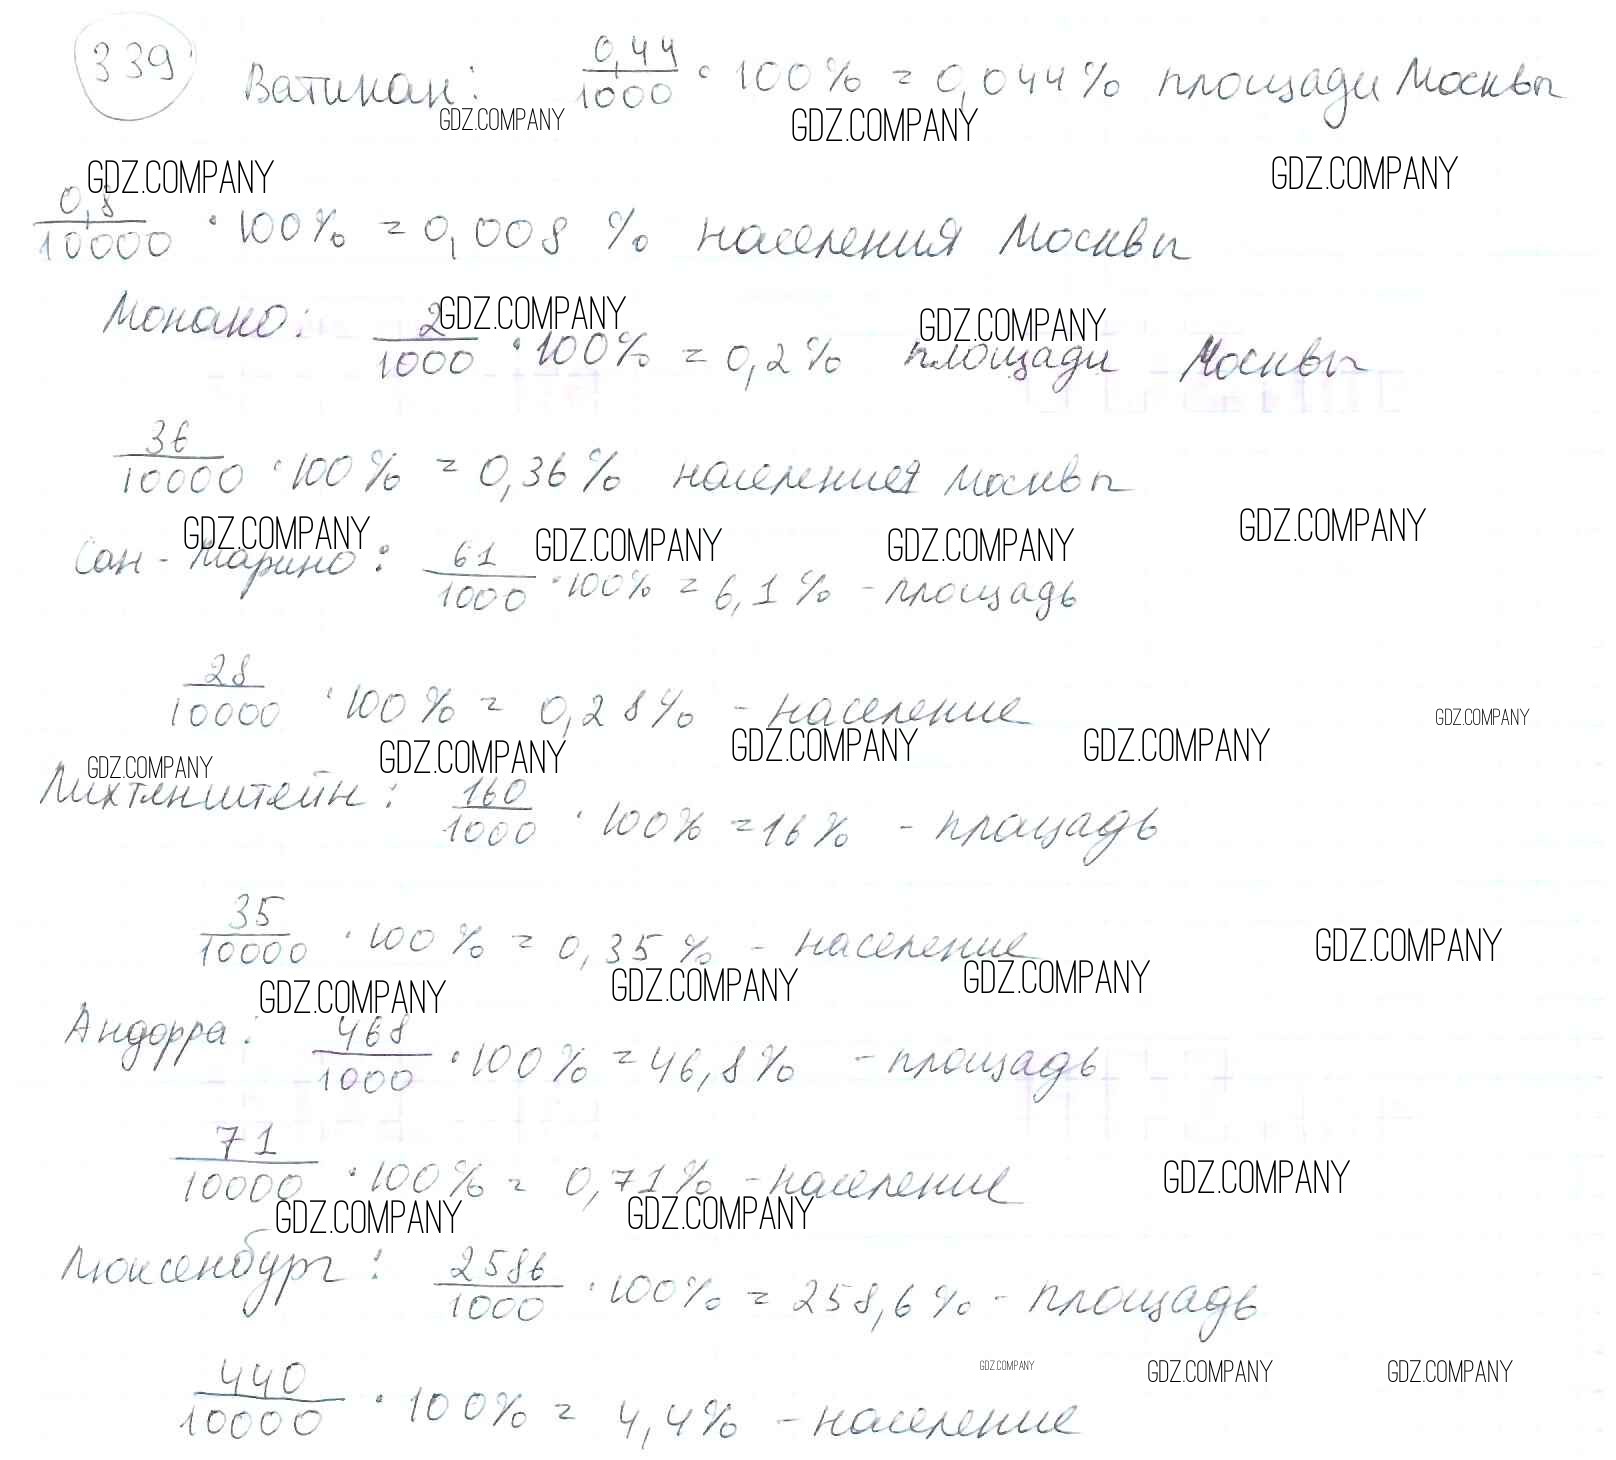 339
Ватикан: 0,44/1000 · 100% = 0,044% площади Москвы
GDZ.COMPANY GDZ.COMPANY
GDZ.COMPANY GDZ.COMPANY
0,8/10000 · 100% = 0,008 % населения Москвы
GDZ.COMPANY GDZ.COMPANY
Монако: 2/1000 · 100% = 0,2% площади Москвы
36/10000 · 100% = 0,36% населения Москвы
GDZ.COMPANY GDZ.COMPANY GDZ.COMPANY GDZ.COMPANY
Сан-Марино: 61/1000 · 100% = 6,1% - площадь
28/10000 · 100% = 0,28% - население
GDZ.COMPANY
GDZ.COMPANY GDZ.COMPANY GDZ.COMPANY GDZ.COMPANY
Лихтенштейн: 160/1000 · 100% = 16% - площадь
35/10000 · 100% = 0,35% - население
GDZ.COMPANY
GDZ.COMPANY GDZ.COMPANY GDZ.COMPANY
Андорра: 468/1000 · 100% = 46,8% - площадь
71/10000 · 100% = 0,71% - население
GDZ.COMPANY
GDZ.COMPANY GDZ.COMPANY
Люксенбург: 2586/1000 · 100% = 258,6% - площадь
GDZ.COMPANY GDZ.COMPANY GDZ.COMPANY
440/10000 · 100% = 4,4% - население